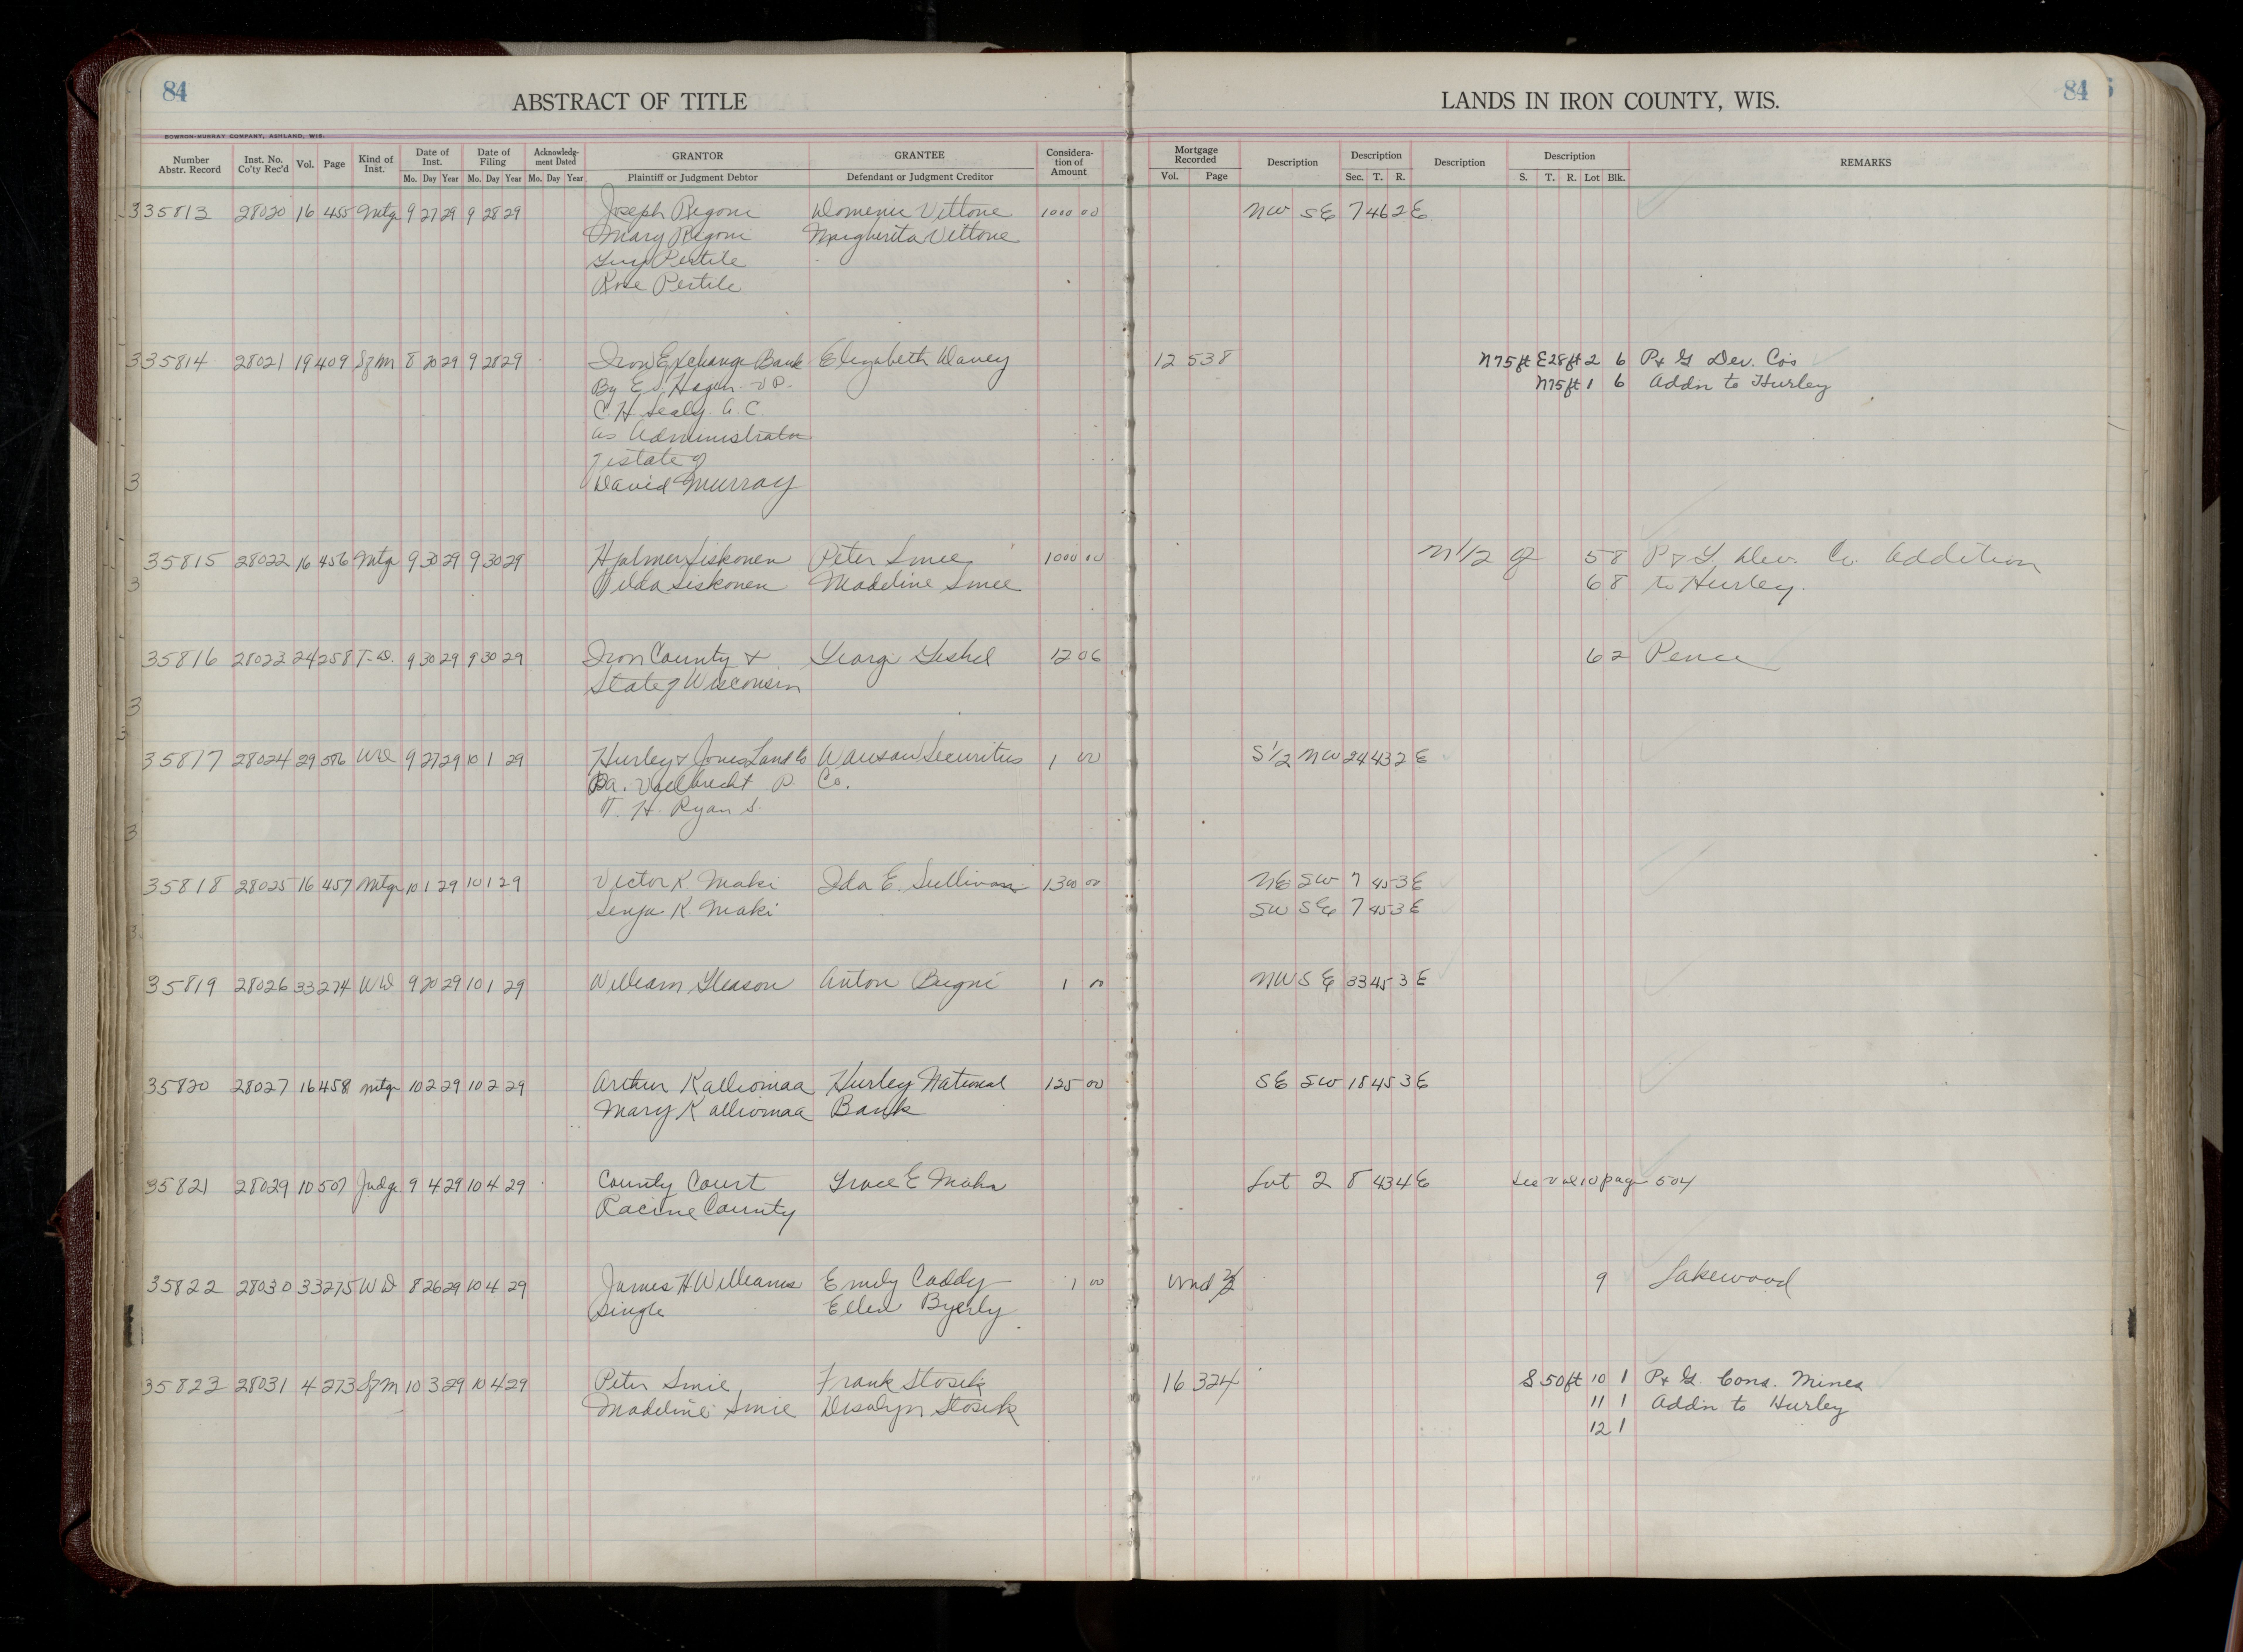 84
ABSTRACT OF TITLE
LANDS IN IRON COUNTY, WIS.
84
BOWRON-MURRAY COMPANY, ASHLAND, WIS.
Number Abstr. Record Inst. No. Co'ty Rec'd Vol. Page Kind of Inst. Date of Inst. Mo. Day Year Date of Filing Mo. Day Year Acknowledgment Dated Mo. Day Year GRANTOR Plaintiff or Judgment Debtor GRANTEE Defendant or Judgment Creditor Consideration of Amount Mortgage Recorded Vol. Page Description Description Sec. T. R. Description Description S. T. R. Lot Blk. REMARKS
35813 28020 16 455 Mtg 9 27 29 9 28 29 Joseph Rigoni Domenic Vittone 1000 00 NW SE 7 46 2 E
Mary Rigoni Margherita Vittone
Pertile
Rose Pertile
35814 28021 19 409 SfM 8 20 29 9 28 29 Iron Exchange Bank Elizabeth Davey 12 538 N75ft E28ft 2 6 P+G Dev. Co's
By E. S. Hagen V P. N75ft 1 6 Addn to Hurley
C. H. Sealy A. C.
as Administrator
of estate of
David Murray
35815 28022 16 456 Mtg 9 30 29 9 30 29 Hjalmer Siskonen Peter Smie 1000 00 N 1/2 of 5 8 P & G Dev. Co. Addition
Hilda Siskonen Madeline Smie 6 8 to Hurley.
35816 28023 24 258 T-D. 9 30 29 9 30 29 Iron County & George 12 06 6 2 Pence
State of Wisconsin
35817 28024 29 576 WD 9 27 29 10 1 29 Hurley & Jones Land Co Wausau Securities 1 00 S 1/2 NW 24 43 2 E
Co.
T. H. Ryan S.
35818 28025 16 457 Mtg 10 1 29 10 1 29 Victor K. Maki Ida E. Sullivan 1300 00 NE SW 7 45 3 E
Senja K. Maki SW SE 7 45 3 E
35819 28026 33 274 WD 9 20 29 10 1 29 William Gleason Anton Bugni 1 00 NW SE 33 45 3 E
35820 28027 16 458 Mtg 10 2 29 10 2 29 Arthur Kalliomaa Hurley National 125 00 SE SW 18 45 3 E
Mary Kalliomaa Bank
35821 28029 10 507 Judg 9 4 29 10 4 29 County Court Grace E Mahn Lot 2 8 43 4 E See Vol 10 page 504
Racine County
35822 28030 33 275 WD 8 26 29 10 4 29 James H Williams Emily Caddy 1 00 Und 9 Lakewood
Single Ellen Byerly
35823 28031 4 273 SfM 10 3 29 10 4 29 Peter Smie Frank Stosik 16 324 S 50ft 10 1 P+G. Cons. Mines
Madeline Smie Stosik 11 1 Addn to Hurley
12 1